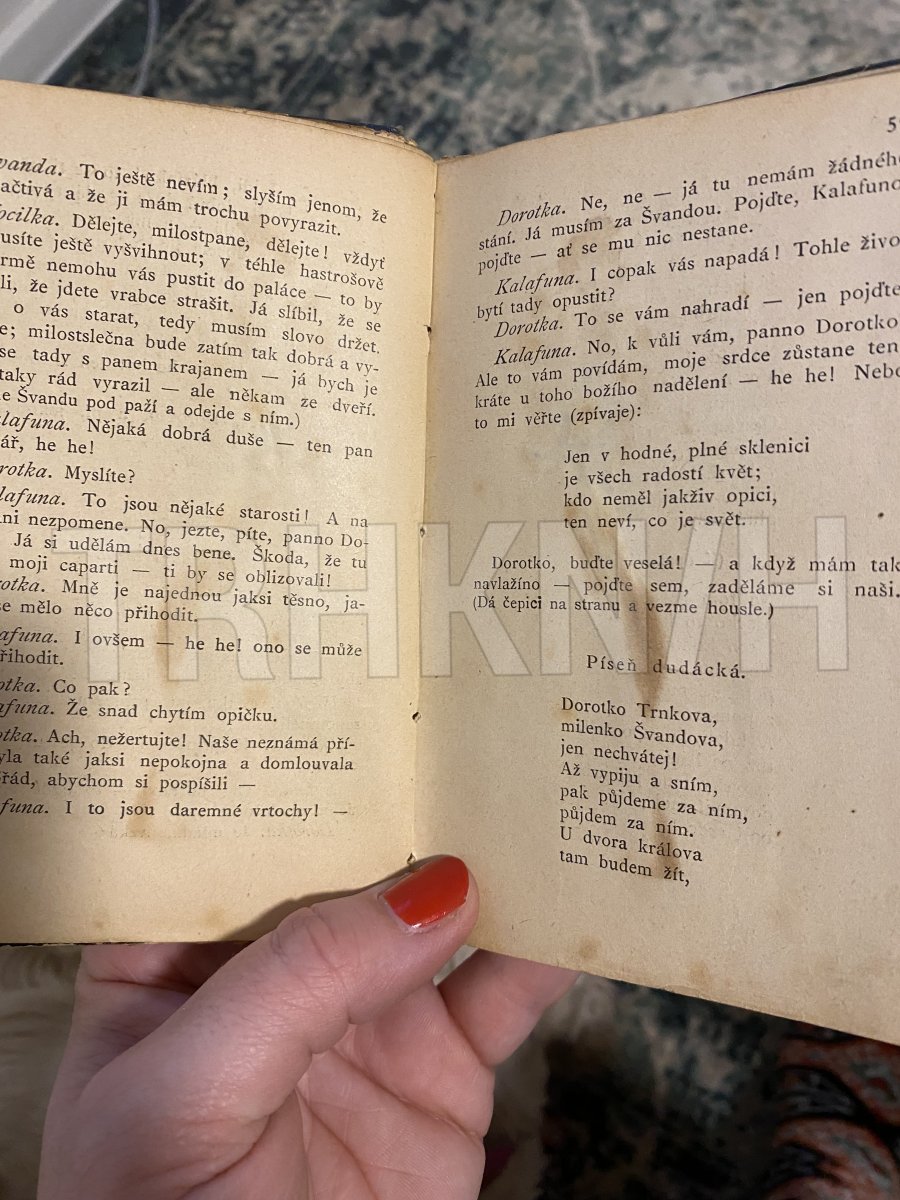 vanda. To ještě nevím; slyším jenom, že
ačtivá a že ji mám trochu povyrazit.
ocilka. Dělejte, milostpane, dělejte! vždyť
usíte ještě vyšvihnout; v téhle hastrošově
rmě nemohu vás pustit do paláce — to by
li, že jdete vrabce strašit. Já slíbil, že se
o vás starat, tedy musím slovo držet.
e; milostslečna bude zatím tak dobrá a vy-
se tady s panem krajanem — já bych je
taky rád vyrazil — ale někam ze dveří.
e Švandu pod paží a odejde s ním.)
alafuna. Nějaká dobrá duše — ten pan
ář, he he!
rotka. Myslíte?
lafuna. To jsou nějaké starosti! A na
ni nezpomene. No, jezte, píte, panno Do-
Já si udělám dnes bene. Škoda, že tu
moji caparti — ti by se oblizovali!
rotka. Mně je najednou jaksi těsno, ja-
se mělo něco přihodit.
afuna. I ovšem — he he! ono se může
řihodit.
otka. Co pak?
afuna. Že snad chytím opičku.
otka. Ach, nežertujte! Naše neznámá pří-
yla také jaksi nepokojna a domlouvala
řád, abychom si pospíšili —
funa. I to jsou daremné vrtochy! —
5
Dorotka. Ne, ne — já tu nemám žádného
stání. Já musím za Švandou. Pojďte, Kalafuno
pojďte — ať se mu nic nestane.
Kalafuna. I copak vás napadá! Tohle živo
bytí tady opustit?
Dorotka. To se vám nahradí — jen pojďte
Kalafuna. No, k vůli vám, panno Dorotko
Ale to vám povídám, moje srdce zůstane ten
kráte u toho božího nadělení — he he! Nebo
to mi věřte (zpívaje):
Jen v hodné, plné sklenici
je všech radostí květ;
kdo neměl jakživ opici,
ten neví, co je svět.
Dorotko, buďte veselá! — a když mám tak
navlažíno — pojďte sem, zaděláme si naši.
(Dá čepici na stranu a vezme housle.)
Píseň dudácká.
Dorotko Trnkova,
milenko Švandova,
jen nechvátej!
Až vypiju a sním,
pak půjdeme za ním,
půjdem za ním.
U dvora králova
tam budem žít,
TRHKNIH